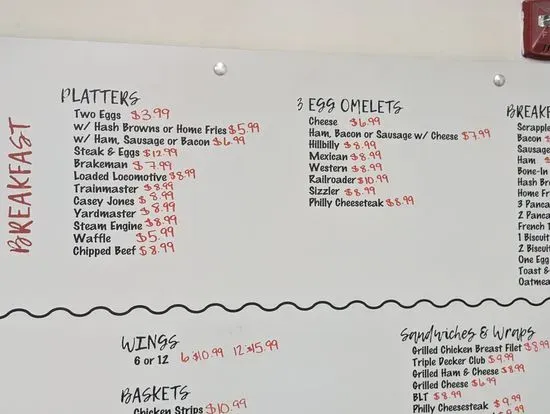 BREAKFAST
PLATTERS
Two Eggs $3.99
w/ Hash Browns or Home Fries $5.99
w/ Ham, Sausage or Bacon $6.99
Steak & Eggs $12.99
Brakeman $7.99
Loaded Locomotive $8.99
Trainmaster $8.99
Casey Jones $8.99
Yardmaster $8.99
Steam Engine $8.99
Waffle $5.99
Chipped Beef $8.99
3 EGG OMELETS
Cheese $6.99
Ham, Bacon or Sausage w/ Cheese $7.99
Hillbilly $8.99
Mexican $8.99
Western $8.99
Railroader $10.99
Sizzler $8.99
Philly Cheesesteak $8.99
BREAKF
Scrapple
Bacon $
Sausage
Ham $
Bone-In
Hash Br
Home Fr
3 Panca
2 Panca
French T
1 Biscuit
2 Biscuit
One Egg
Toast &
Oatmea
WINGS
6 or 12 6 $10.99 12 $15.99
BASKETS
Chicken Strips $10.99
Sandwiches & Wraps
Grilled Chicken Breast Filet $8.99
Triple Decker Club $9.99
Grilled Ham & Cheese $8.99
Grilled Cheese $6.99
BLT $8.99
Philly Cheesesteak $9.99